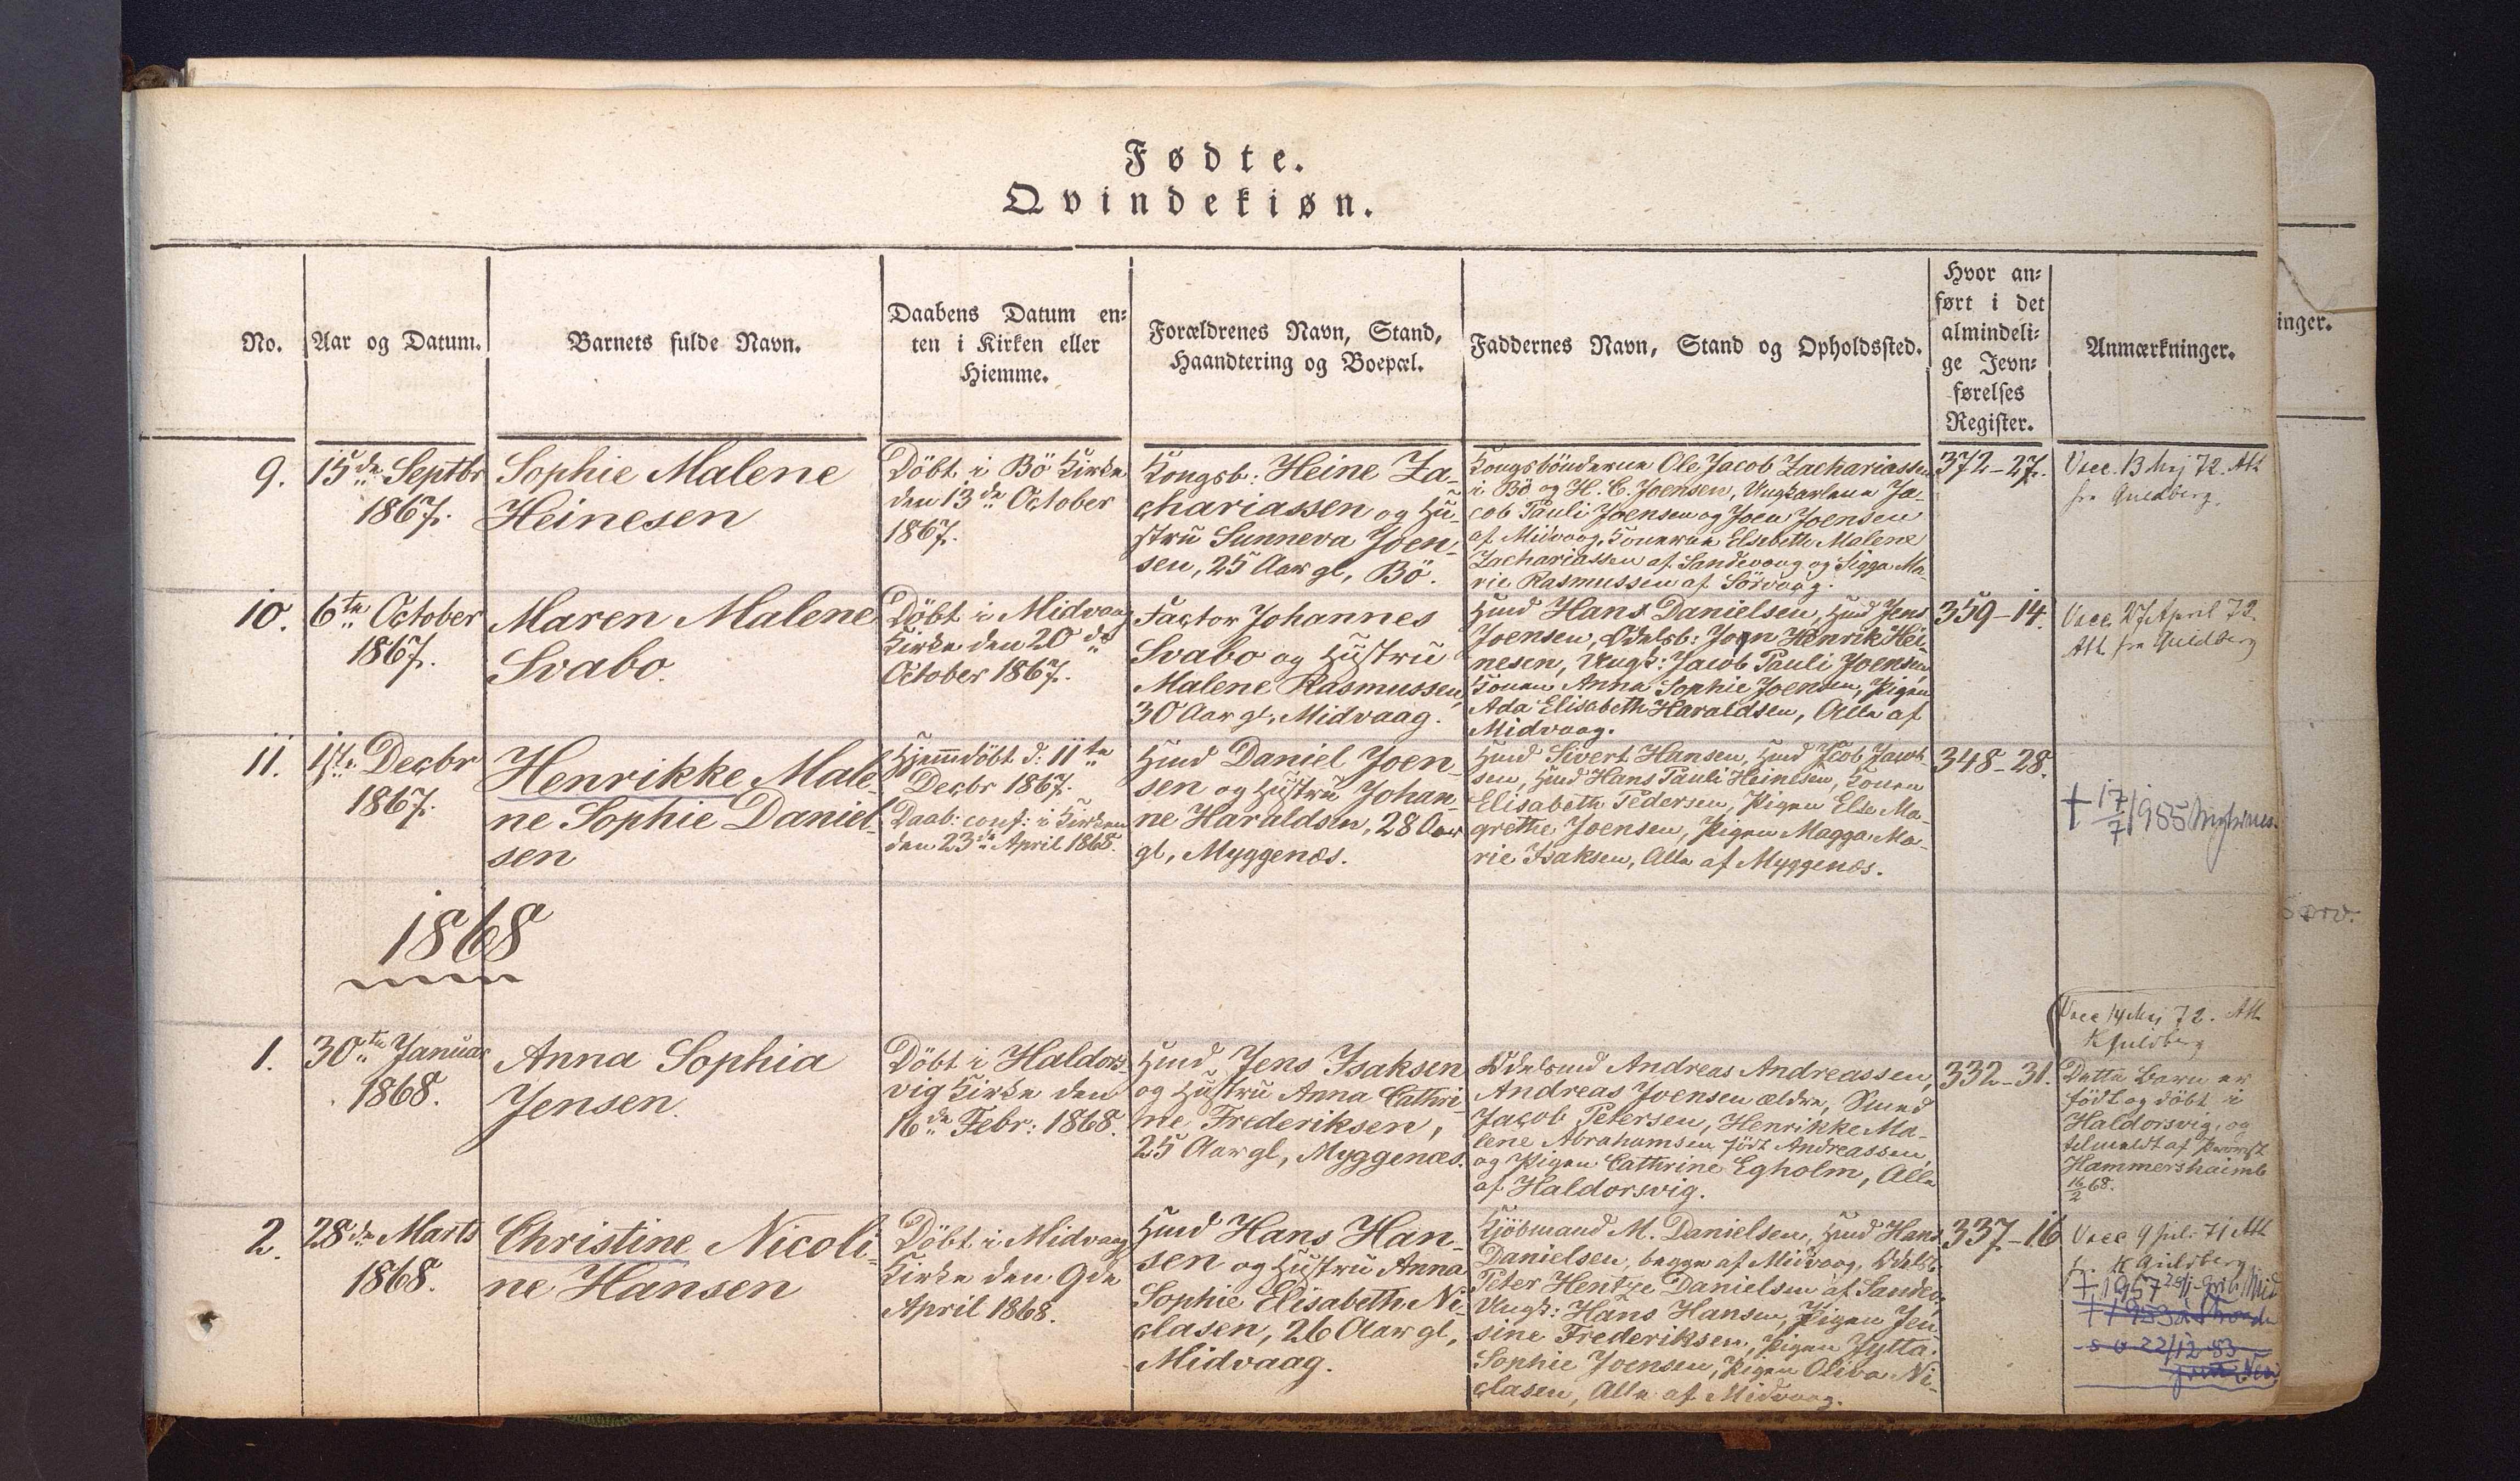 Fødte.
Qvindekiøn.
No.
Aar og Datum.
Barnets fulde Navn.
Daabens Datum en=
ten i Kirken eller
Hiemme.
Forældrenes Navn, Stand,
Haandtering og Boepæl.
Faddernes Navn, Stand og Opholdssted.
Hvor an=
ført i det
almindeli=
ge Jevn=
førelses
Register.
Anmærkninger.
inger.
9.
15de Septbr
1867.
Sophie Malene
Heinesen
Döbt i Bö Kirke
den 13de October
1867.
Kongsb: Heine Za-
chariassen og Hu-
stru Sunneva Joen-
sen, 25 Aar gl, Bö.
Kongsbönderne Ole Jacob Zachariassen
i Bö og H. C. Joensen, Ungkarlene Ja-
cob Pauli Joensen og Joen Joensen
af Midvaag, Konerne Elsebeth Malene
Zachariassen af Sandevaag og Sigga Ma-
rie Rasmussen af Sörvaag.
372-27.
Vacc. 13 Maj 72. Att
fra Guldberg.
10.
6te October
1867.
Maren Malene
Svabo.
Döbt i Midvaag
Kirke den 20de
October 1867.
Factor Johannes
Svabo og Hustru
Malene Rasmussen,
30 Aar gl, Midvaag.
Hmd Hans Danielsen, Hmd Jens
Joensen, Odelsb: Joen Henrik Hei-
nesen, Ungk: Jacob Pauli Joensen,
Konen Anna Sophie Joensen, Pigen
Ada Elisabeth Haraldsen, Alle af
Midvaag.
359-14.
Vacc. 27 April 72.
Att fra Guldberg
11.
1ste Decbr
1867.
Henrikke Male-
ne Sophie Daniel-
sen
Hjemmdöbt d: 11te
Decbr 1867.
Daab: conf: i Kirken
den 23de April 1868.
Hmd Daniel Joen-
sen og Hustru Johan-
ne Haraldsen, 28 Aar
gl, Myggenæs.
Hmd Sivert Hansen, Hmd Jacob Jacob-
sen, Hmd Hans Pauli Heinesen, Konen
Elisabeth Pedersen, Pigen Else Ma-
grethe Joensen, Pigen Magga Ma-
rie Isaksen, Alle af Myggenæs.
348-28.
† 17/7 1955
1868
1.
30te Januar
1868.
Anna Sophia
Jensen.
Döbt i Haldors-
vig Kirke den
16de Febr: 1868.
Hmd Jens Isaksen
og Hustru Anna Cathri-
ne Frederiksen,
25 Aar gl, Myggenæs.
Odelsmd Andreas Andreassen,
Andreas Joensen ældre, Smed
Jacob Petersen, Henrikke Ma-
lene Abrahamsen født Andreassen,
og Pigen Cathrine Egholm, Alle
af Haldorsvig.
332-31.
Vacc 14 Maj 72. Att
K Guldberg
Dette Barn er
født og döbt i
Haldorsvig, og
tilmeldt af Provst
Hammershaimb
16/2 68.
2.
28de Marts
1868.
Christine Nicoli-
ne Hansen
Döbt i Midvaag
Kirke den 9de
April 1868.
Hmd Hans Han-
sen og Hustru Anna
Sophie Elisabeth Ni-
clasen, 26 Aar gl,
Midvaag.
Kjöbmand M. Danielsen, Hmd Hans
Danielsen, begge af Midvaag, Odelsb
Peter Hentze Danielsen af Sandev:
Ungk: Hans Hansen, Pigen Jen-
sine Frederiksen, Pigen Jytta
Sophie Joensen, Pigen Oliva Ni-
clasen, Alle af Midvaag.
337-16
Vacc 9 Juli 71 Att
K Guldberg
† 1957
† 1953
22/12 53